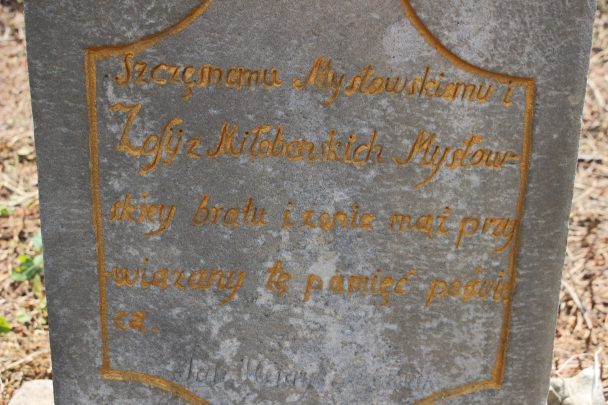 Szczęsnemu Mysłowskiemu i
Zofij z Miłobenskich Mysłow-
skiey bratu i żonie mąż przy
wiązany tę pamięć poświę
ca.